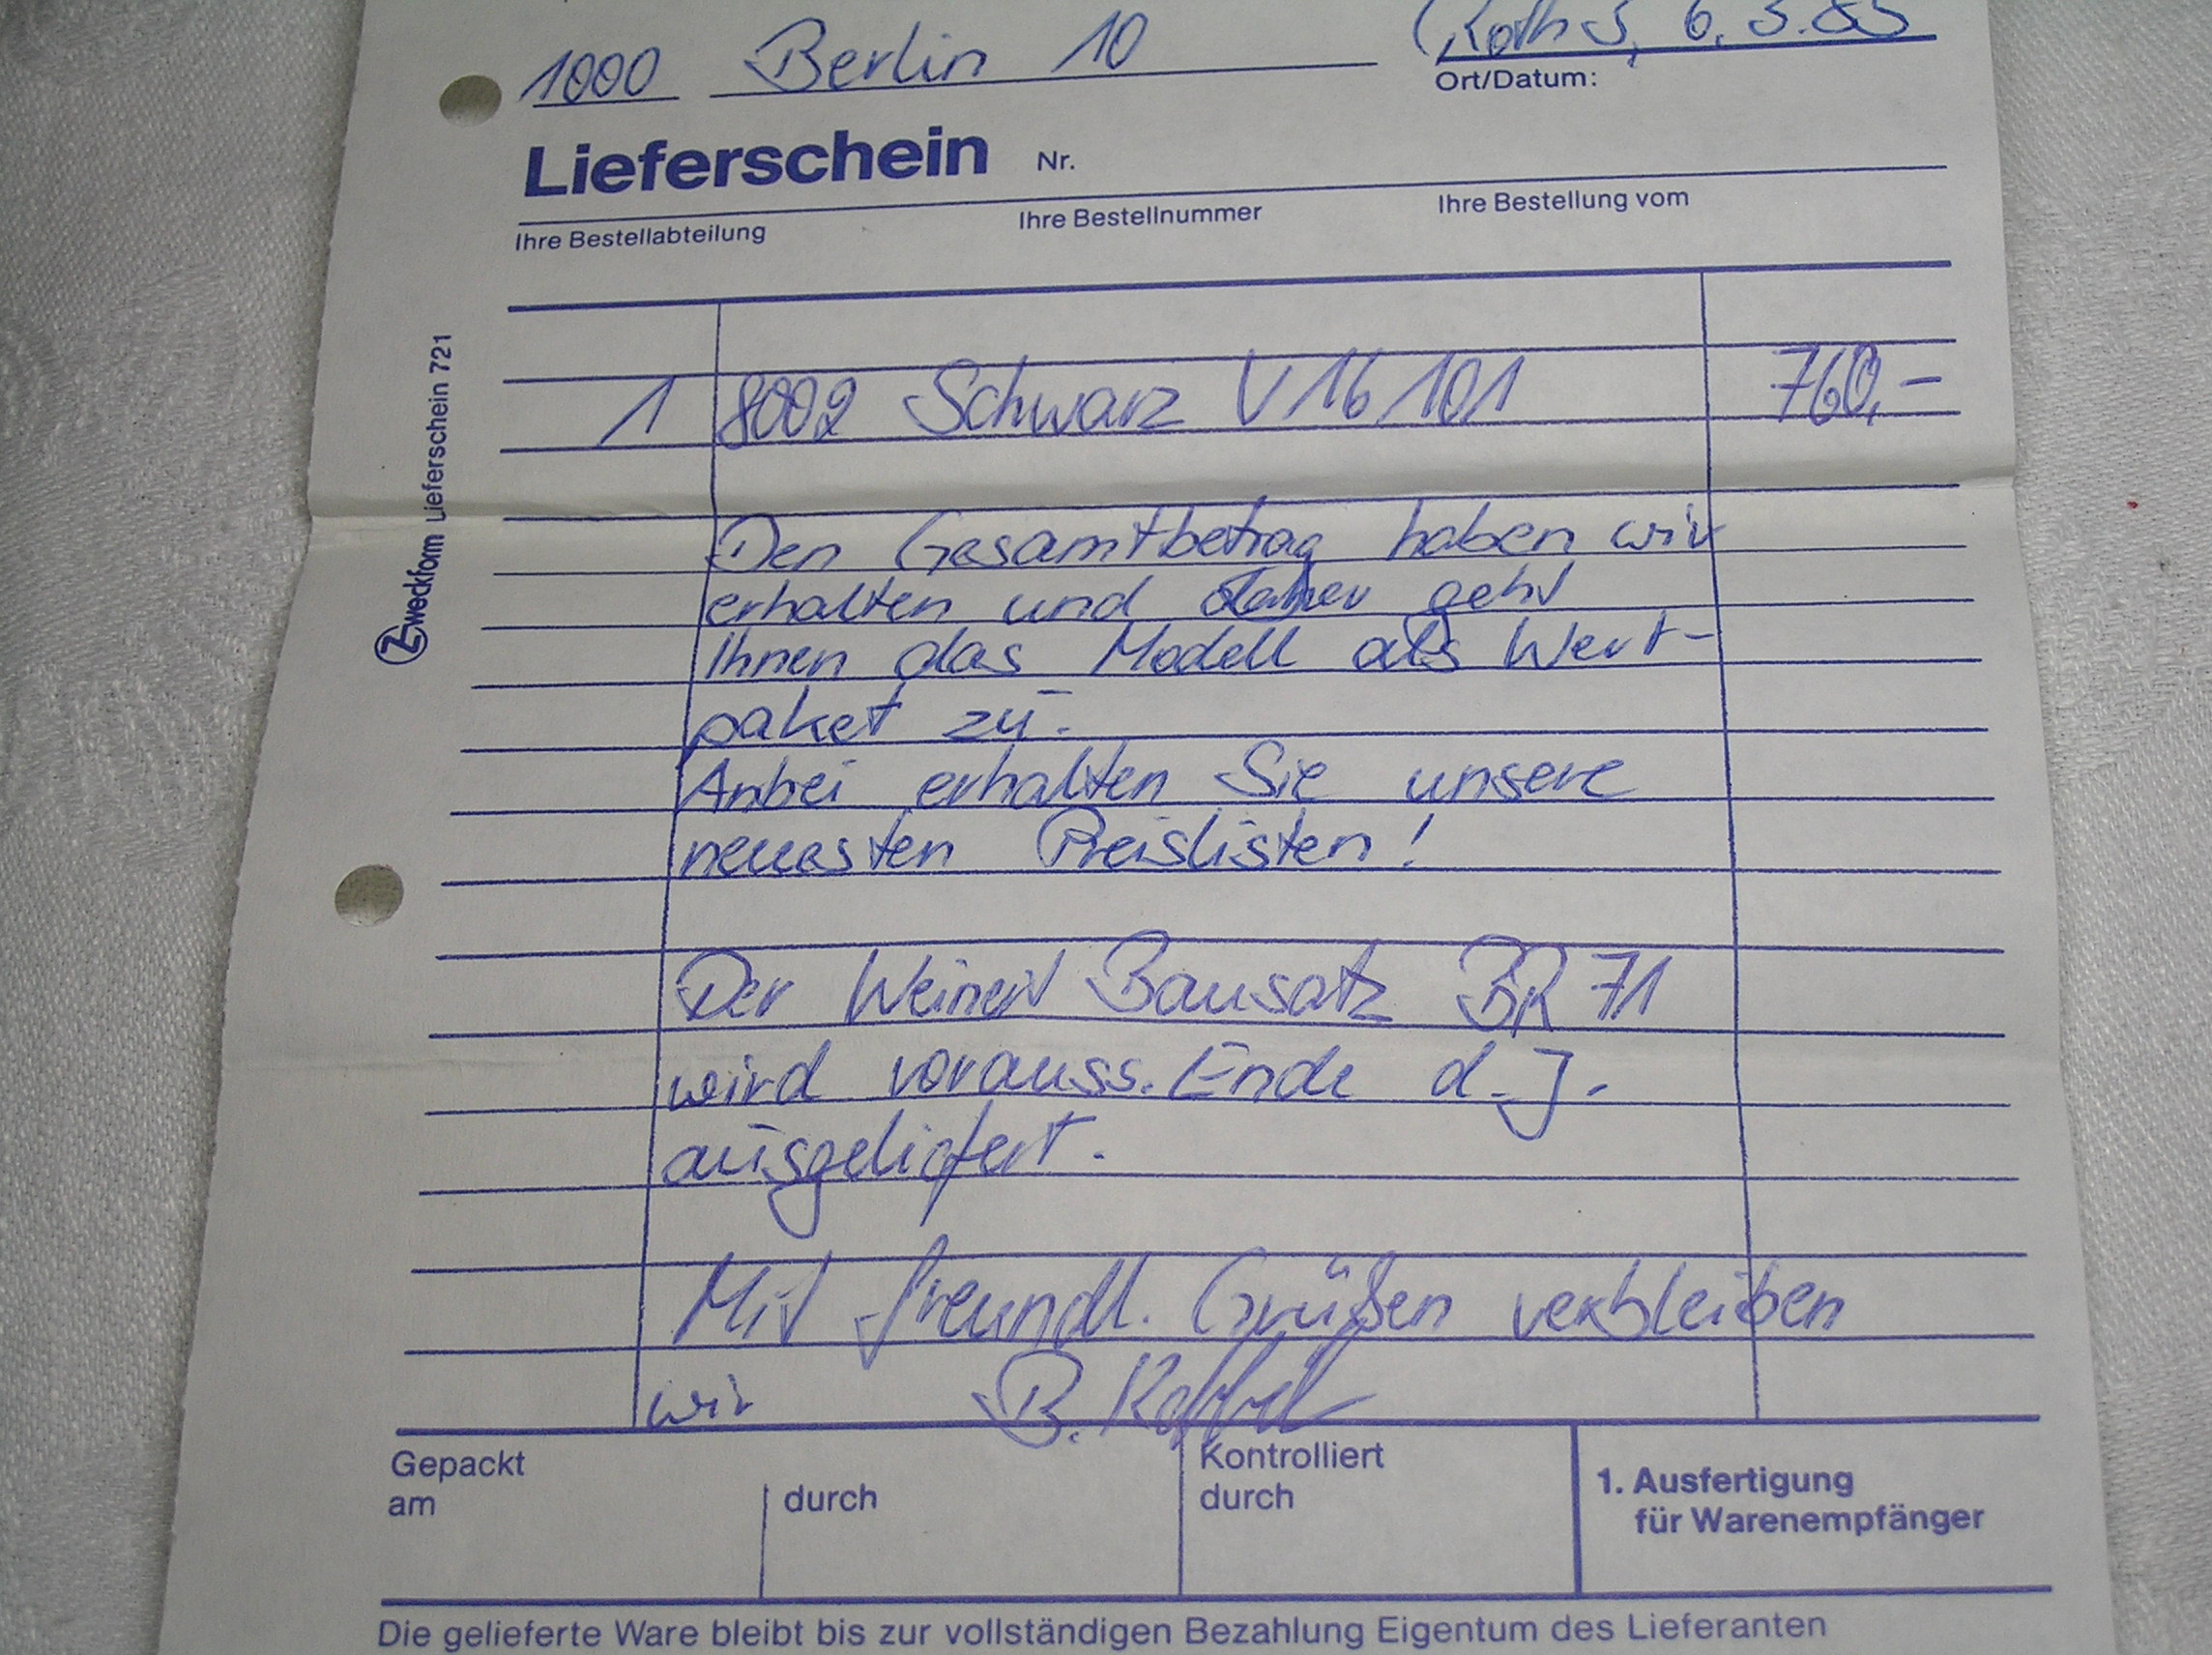 1000 Berlin 10
Roth 5, 6.3.85
Ort/Datum:
Lieferschein Nr.
Ihre Bestellabteilung Ihre Bestellnummer Ihre Bestellung vom
1 8002 Schwarz V16 101 760,-
Den Gesamtbetrag haben wir
erhalten und daher geht
Ihnen das Modell als Wert-
paket zu.
Anbei erhalten Sie unsere
neuesten Preislisten!
Der Weinert Bausatz BR 71
wird vorauss. Ende d. J.
ausgeliefert.
Mit freundl. Grüßen verbleiben
wir B.
Zweckform Lieferschein 721
Gepackt
am
durch
Kontrolliert
durch
1. Ausfertigung
für Warenempfänger
Die gelieferte Ware bleibt bis zur vollständigen Bezahlung Eigentum des Lieferanten